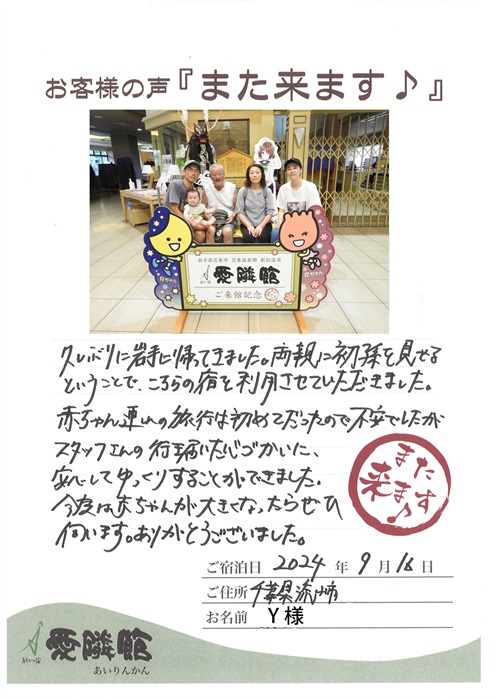 お客様の声『また来ます♪』
岩手県花巻市 花巻温泉郷 新鉛温泉
愛隣館
ご来館記念
久しぶりに岩手に帰ってきました。両親に初孫を見せる
ということで、こちらの宿を利用させていただきました。
赤ちゃん連れの旅行は初めてだったので不安でしたが
スタッフさんの行き届いた気づかいに、
安心してゆっくりすることができました。
今度は赤ちゃんが大きくなったらぜひ
伺います。ありがとうございました。
また
来ます♪
ご宿泊日 2024年9月16日
ご住所 千葉県流山市
お名前 Y様
愛隣館
あいりんかん